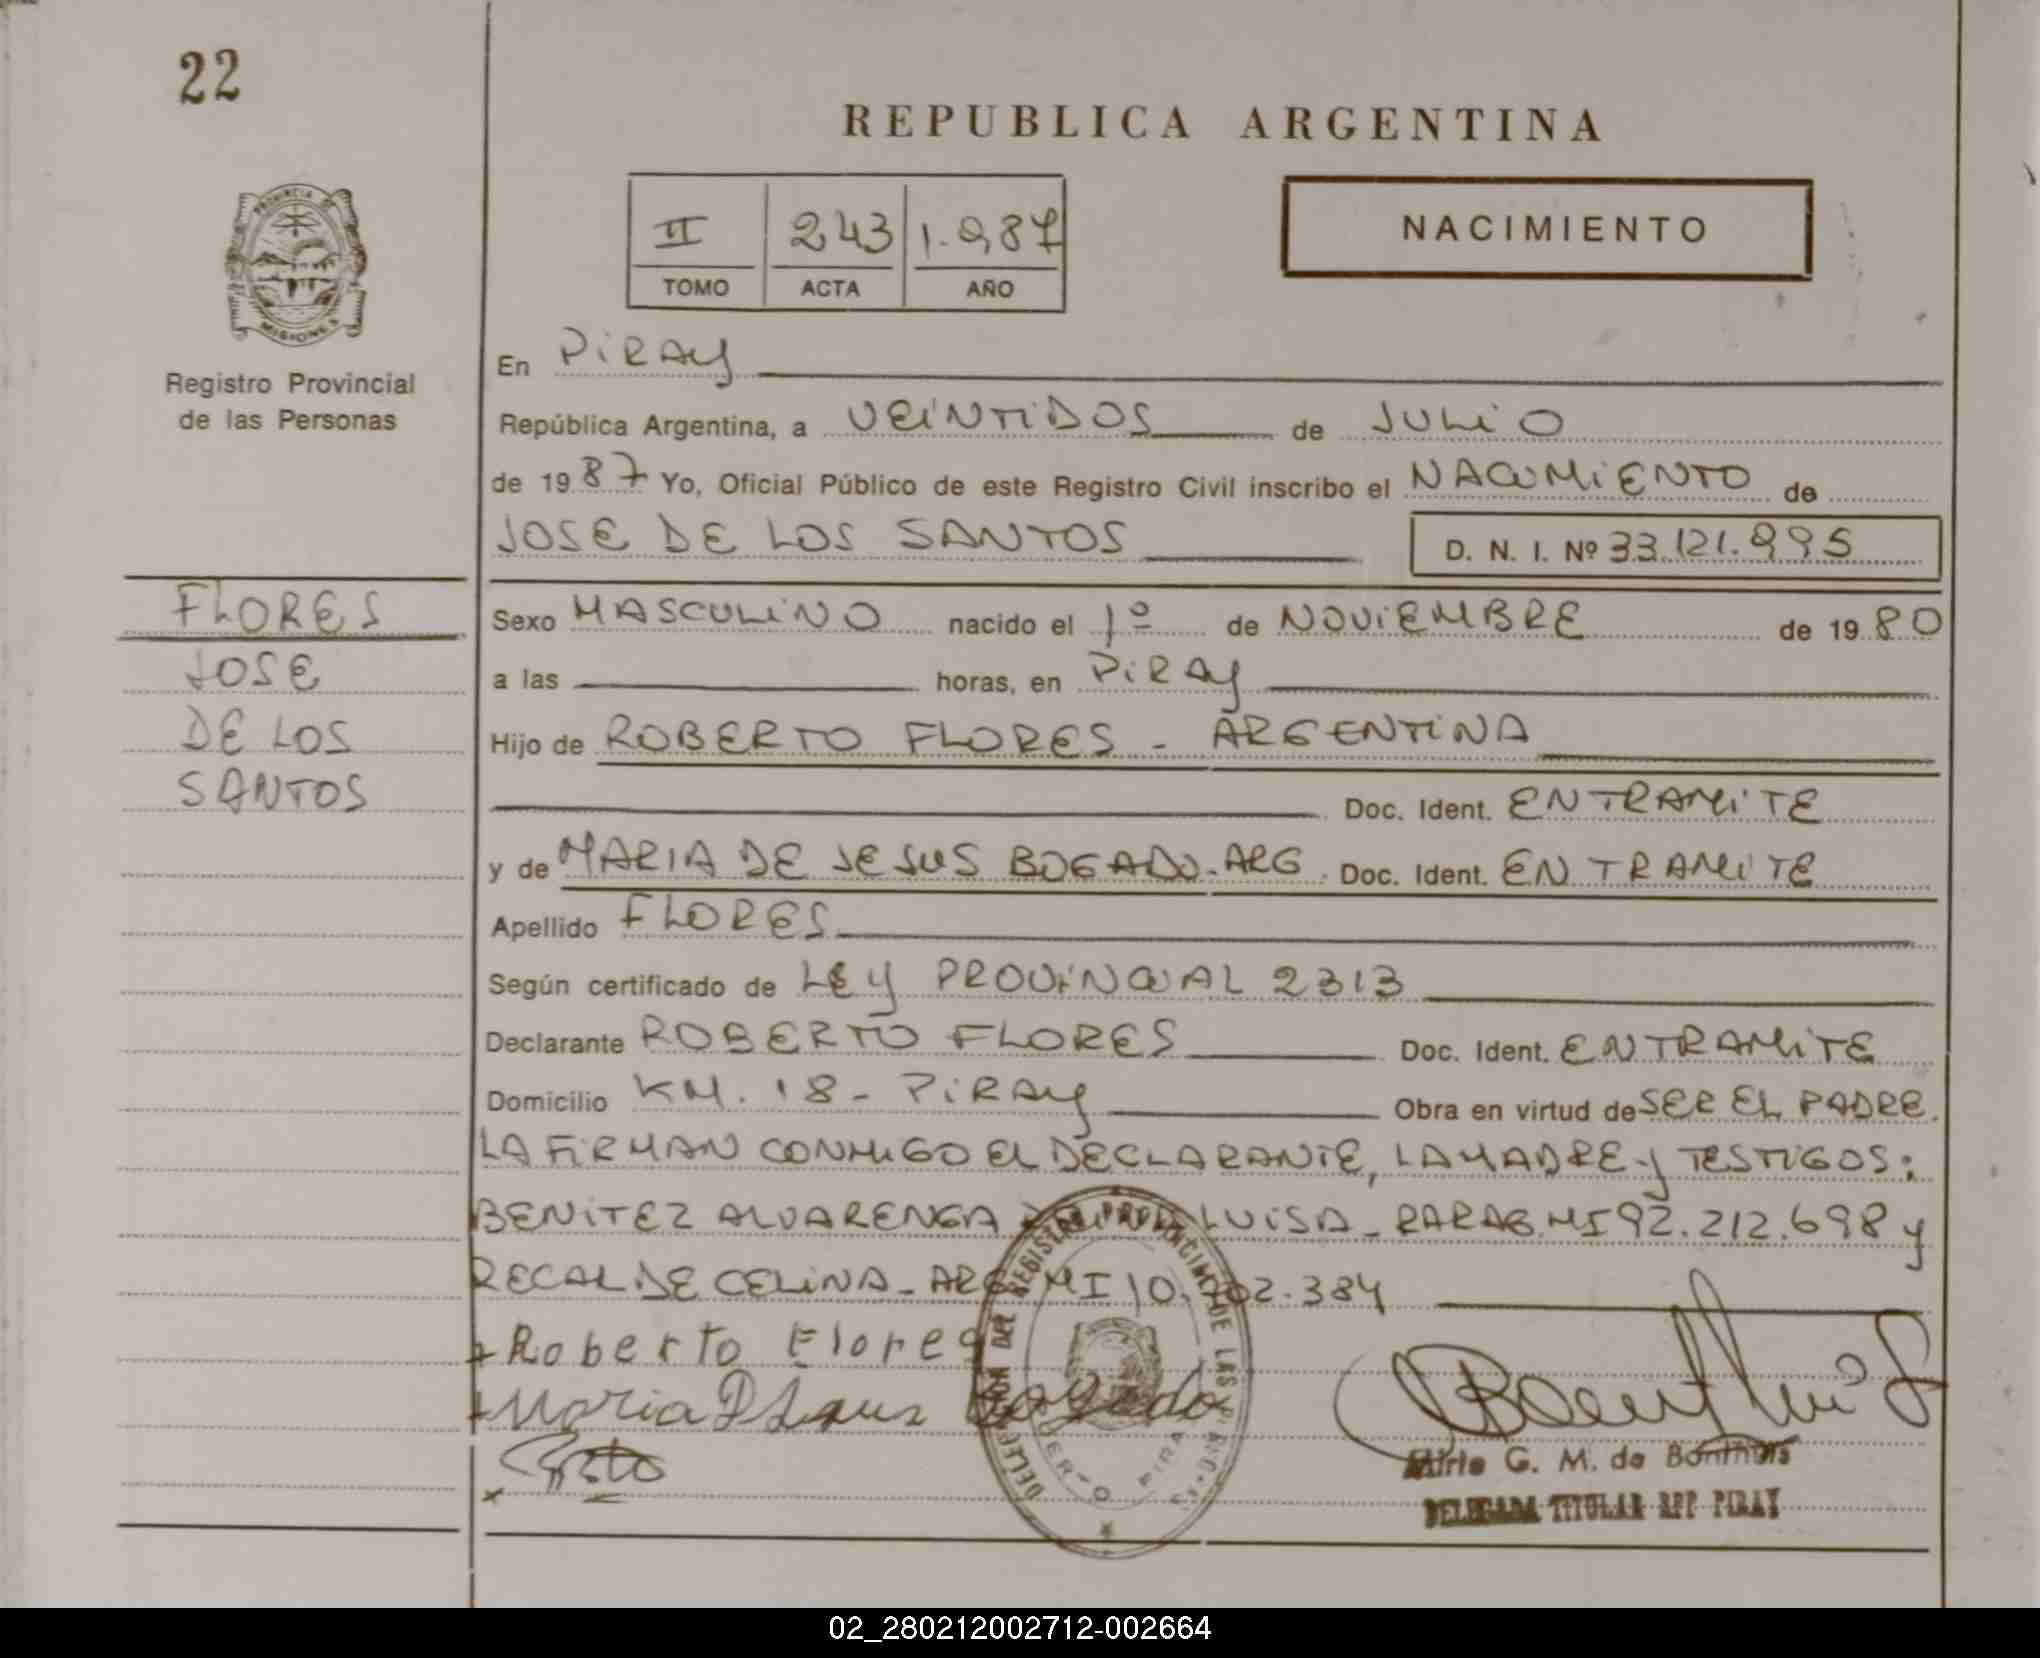 22
REPUBLICA ARGENTINA
II 243 1.987
TOMO ACTA AÑO
NACIMIENTO
PROVINCIA DE
MISIONES
Registro Provincial
de las Personas
En PiRAY
República Argentina, a VEiNTiDOS de JULiO
de 1987 Yo, Oficial Público de este Registro Civil inscribo el NACiMiENTO de
JOSE DE LOS SANTOS D. N. I. Nº 33.121.995
FLORES
JOSE
DE LOS
SANTOS
Sexo MASCULiNO nacido el 1º de NOViEMBRE de 1980
a las horas, en PiRAY
Hijo de ROBERTO FLORES - ARGENTiNA
Doc. Ident. EN TRAMiTE
y de MARIA DE JESUS BOGADO - ARG. Doc. Ident. EN TRAMiTE
Apellido FLORES
Según certificado de LEY PROViNCiAL 2313
Declarante ROBERTO FLORES Doc. Ident. EN TRAMiTE
Domicilio KM. 18 - PiRAY Obra en virtud de SER EL PADRE.
LA FiRMAN CONMiGO EL DECLARANTE, LA MADRE Y TESTiGOS:
BENiTEZ ALVARENGA LUiSA - PARAG. MI 92.212.698 y
RECALDE CELiNA - ARG MI 10. 02.384
+ Roberto Flores
+ Maria D Jesus Bogado
x
DELEGACION DEL REGISTRO PROVINCIAL DE LAS PERSONAS
PUERTO PIRAY
Mirle G. M. de
DELEGADA TITULAR RPP PIRAY
02_280212002712-002664